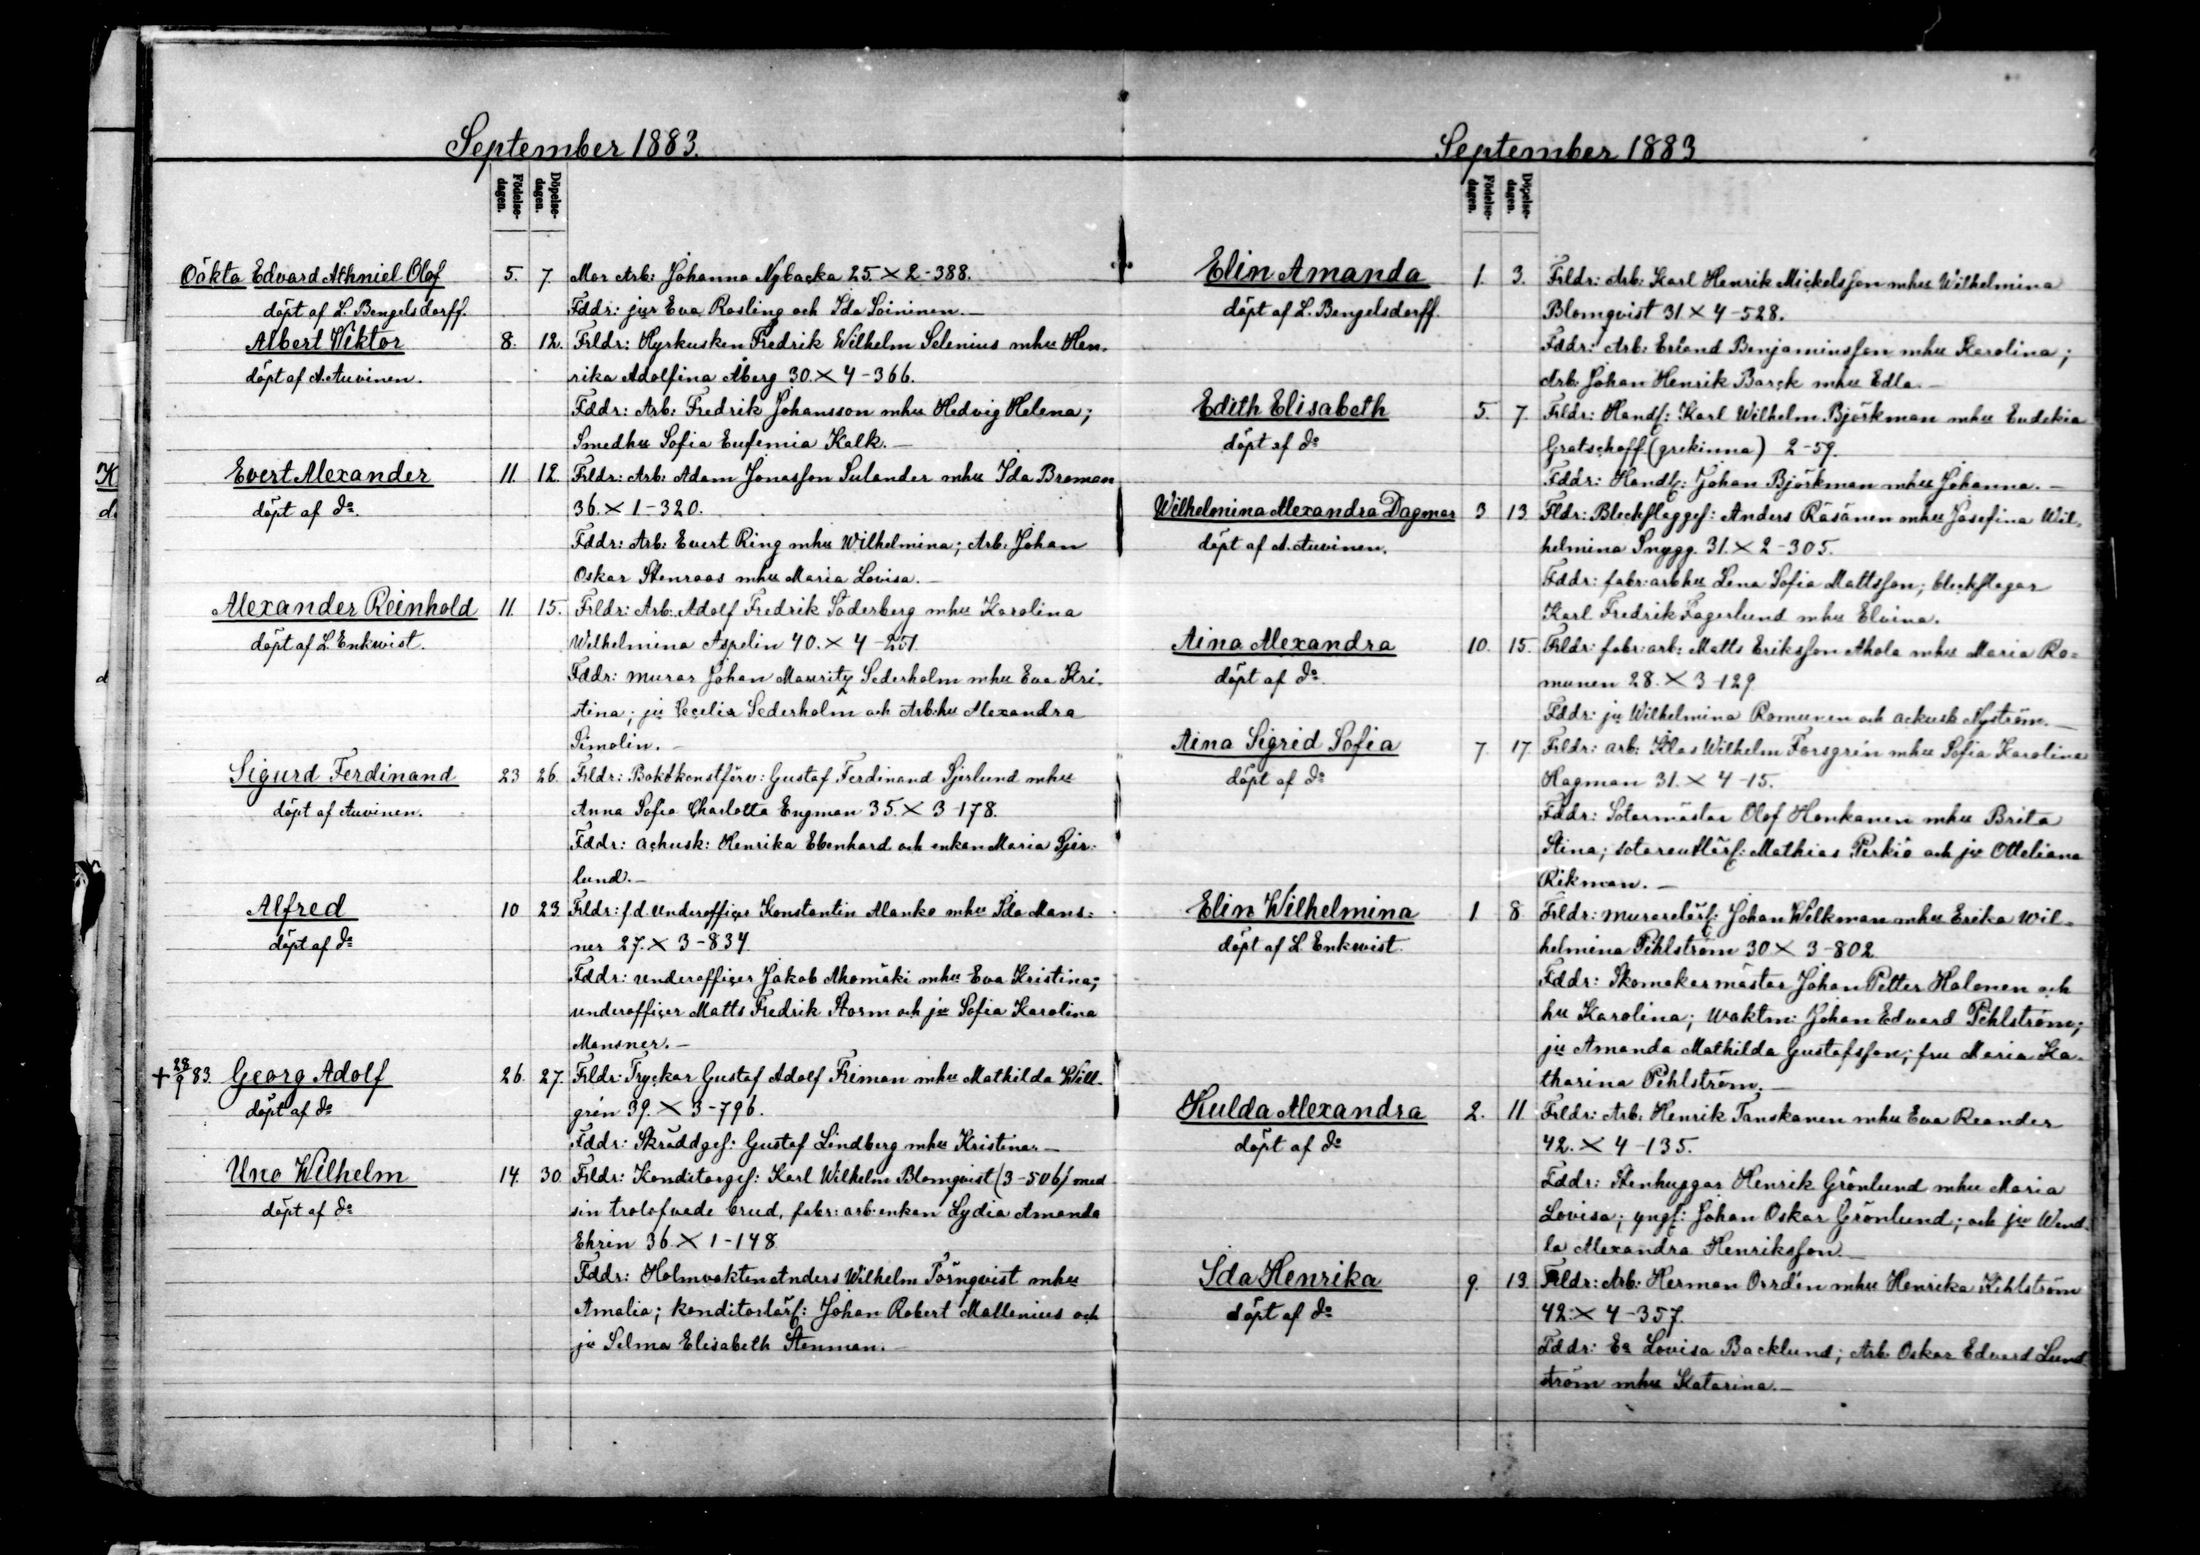 September 1883.
Födelse-dagen. Döpelse-dagen.
Oäkta Edvard Athniel Olof 5. 7. Mor Arb: Johanna Nybacka 25. × 2-388.
döpt af L. Bengelsdorff. Fddr: jgr Eva Rosling och Ida Soininen.—
Albert Viktor 8. 12. Frldr: Hyrkusken Fredrik Wilhelm Selenius mhu Hen-
döpt af A. Auvinen. rika Adolfina Åberg 30. × 4-366.
Fddr: Arb: Fredrik Johansson mhu Hedvig Helena;
Smedhu Sofia Eufemia Kalk.—
Evert Alexander 11. 12. Frldr: Arb: Adam Jonasson Sulander mhu Ida Broman
döpt af do. 36. × 1-320.
Fddr: Arb: Evert Ring mhu Wilhelmina; Arb: Johan
Oskar Stenroos mhu Maria Lovisa.—
Alexander Reinhold 11. 15. Frldr: Arb: Adolf Fredrik Söderberg mhu Karolina
döpt af L. Enkwist. Wilhelmina Aspelin 40. × 4-251.
Fddr: murar Johan Mauritz Sederholm mhu Eva Kri-
stina; ju Cecelia Sederholm och Arb:hu Alexandra
Simolin.—
Sigurd Ferdinand 23 26. Frldr: Bokhonstförv: Gustaf Ferdinand Sjerlund mhu
döpt af Auvinen. Anna Sofia Charlotta Engman 35. × 3-178.
Fddr: achusk: Henrika Ebenhard och enkan Maria Sjer-
lund.—
Alfred 10 23 Frldr: f.d. underofficer Konstantin Alanko mhu Ida Mans-
döpt af do ner 27. × 3-834.
Fddr: underofficer Jakob Ahomäki mhu Eva Kristina;
underofficer Matts Fredrik Storm och ju Sofia Karolina
Mansner.—
+ 28/9 83. Georg Adolf 26. 27. Frldr: Tryckar Gustaf Adolf Friman mhu Mathilda Will-
döpt af do grén 39. × 3-796.
Fddr: Skräddgef: Gustaf Lindberg mhu Kristina.—
Uno Wilhelm 14. 30. Frldr: Konditorgef: Karl Wilhelm Blomqvist (3-506) med
döpt af do sin trolofvade brud, fabr: arb: enkan Lydia Amanda
Ehrin 36. × 1-148.
Fddr: Holmvakten Anders Wilhelm Törnqvist mhu
Amalia; konditorlärl: Johan Robert Mallenius och
ju Selma Elisabeth Stenman.—
September 1883
Födelse-dagen. Döpelse-dagen.
Elin Amanda 1. 3. Frldr: Arb: Karl Henrik Mickelsson mhu Wilhelmina
döpt af L. Bengelsdorff. Blomqvist 31 × 4-528.
Fddr: Arb: Erland Benjaminsson mhu Karolina;
Arb: Johan Henrik Barck mhu Edla.—
Edith Elisabeth 5. 7. Frldr: Handl: Karl Wilhelm Björkman mhu Eudokia
döpt af do Gratschoff (grekinna) 2-59.
Fddr: Handl: Johan Björkman mhu Johanna.—
Wilhelmina Alexandra Dagmar 3 13 Fldr: Bleckslaggef: Anders Räsänen mhu Josefina Wil-
döpt af A. Auvinen. helmina Snygg. 31. × 2-305.
Fddr: fabr: arbhu Lena Sofia Mattsson; bleckslagar
Karl Fredrik Fagerlund mhu Elvina.
Aina Alexandra 10. 15. Frldr: fabr: arb: Matts Eriksson Ahola mhu Maria Ro-
döpt af do. munen 28. × 3-129
Fddr: ju Wilhelmina Romunen och ackusk Nyström.—
Aina Sigrid Sofia 7. 17. Frldr: arb: Klas Wilhelm Forsgrén mhu Sofia Karolina
döpt af do Hagman 31. × 4-15.
Fddr: Sotarmästar Olof Honkanen mhu Brita
Stina; sotareutlärl: Mathias Perkiö och ju Otteliana
Rikman.—
Elin Wilhelmina 1 8. Frldr: murarelärl: Johan Wilkman mhu Erika Wil-
döpt af L. Enkwist. helmina Pihlström 30 × 3-802.
Fddr: Skomakarmästar Johan Petter Halonen och
hu Karolina; waktm: Johan Edvard Pihlström;
ju Amanda Mathilda Gustafsson; fru Maria Ka-
tharina Pihlström.—
Hulda Alexandra 2. 11. Frldr: Arb: Henrik Tanskanen mhu Eva Reander
döpt af do 42. × 4-135.
Fddr: Stenhuggar Henrik Grönlund mhu Maria
Lovisa; yngl: Johan Oskar Grönlund; och ju Wend-
la Alexandra Henriksson.—
Ida Henrika 9. 13. Frldr: Arb: Herman Orrdin mhu Henrika Kihlström
döpt af do 42. × 4-357.
Fddr: Ea Lovisa Backlund; Arb Oskar Edvard Lund-
ström mhu Katarina.—